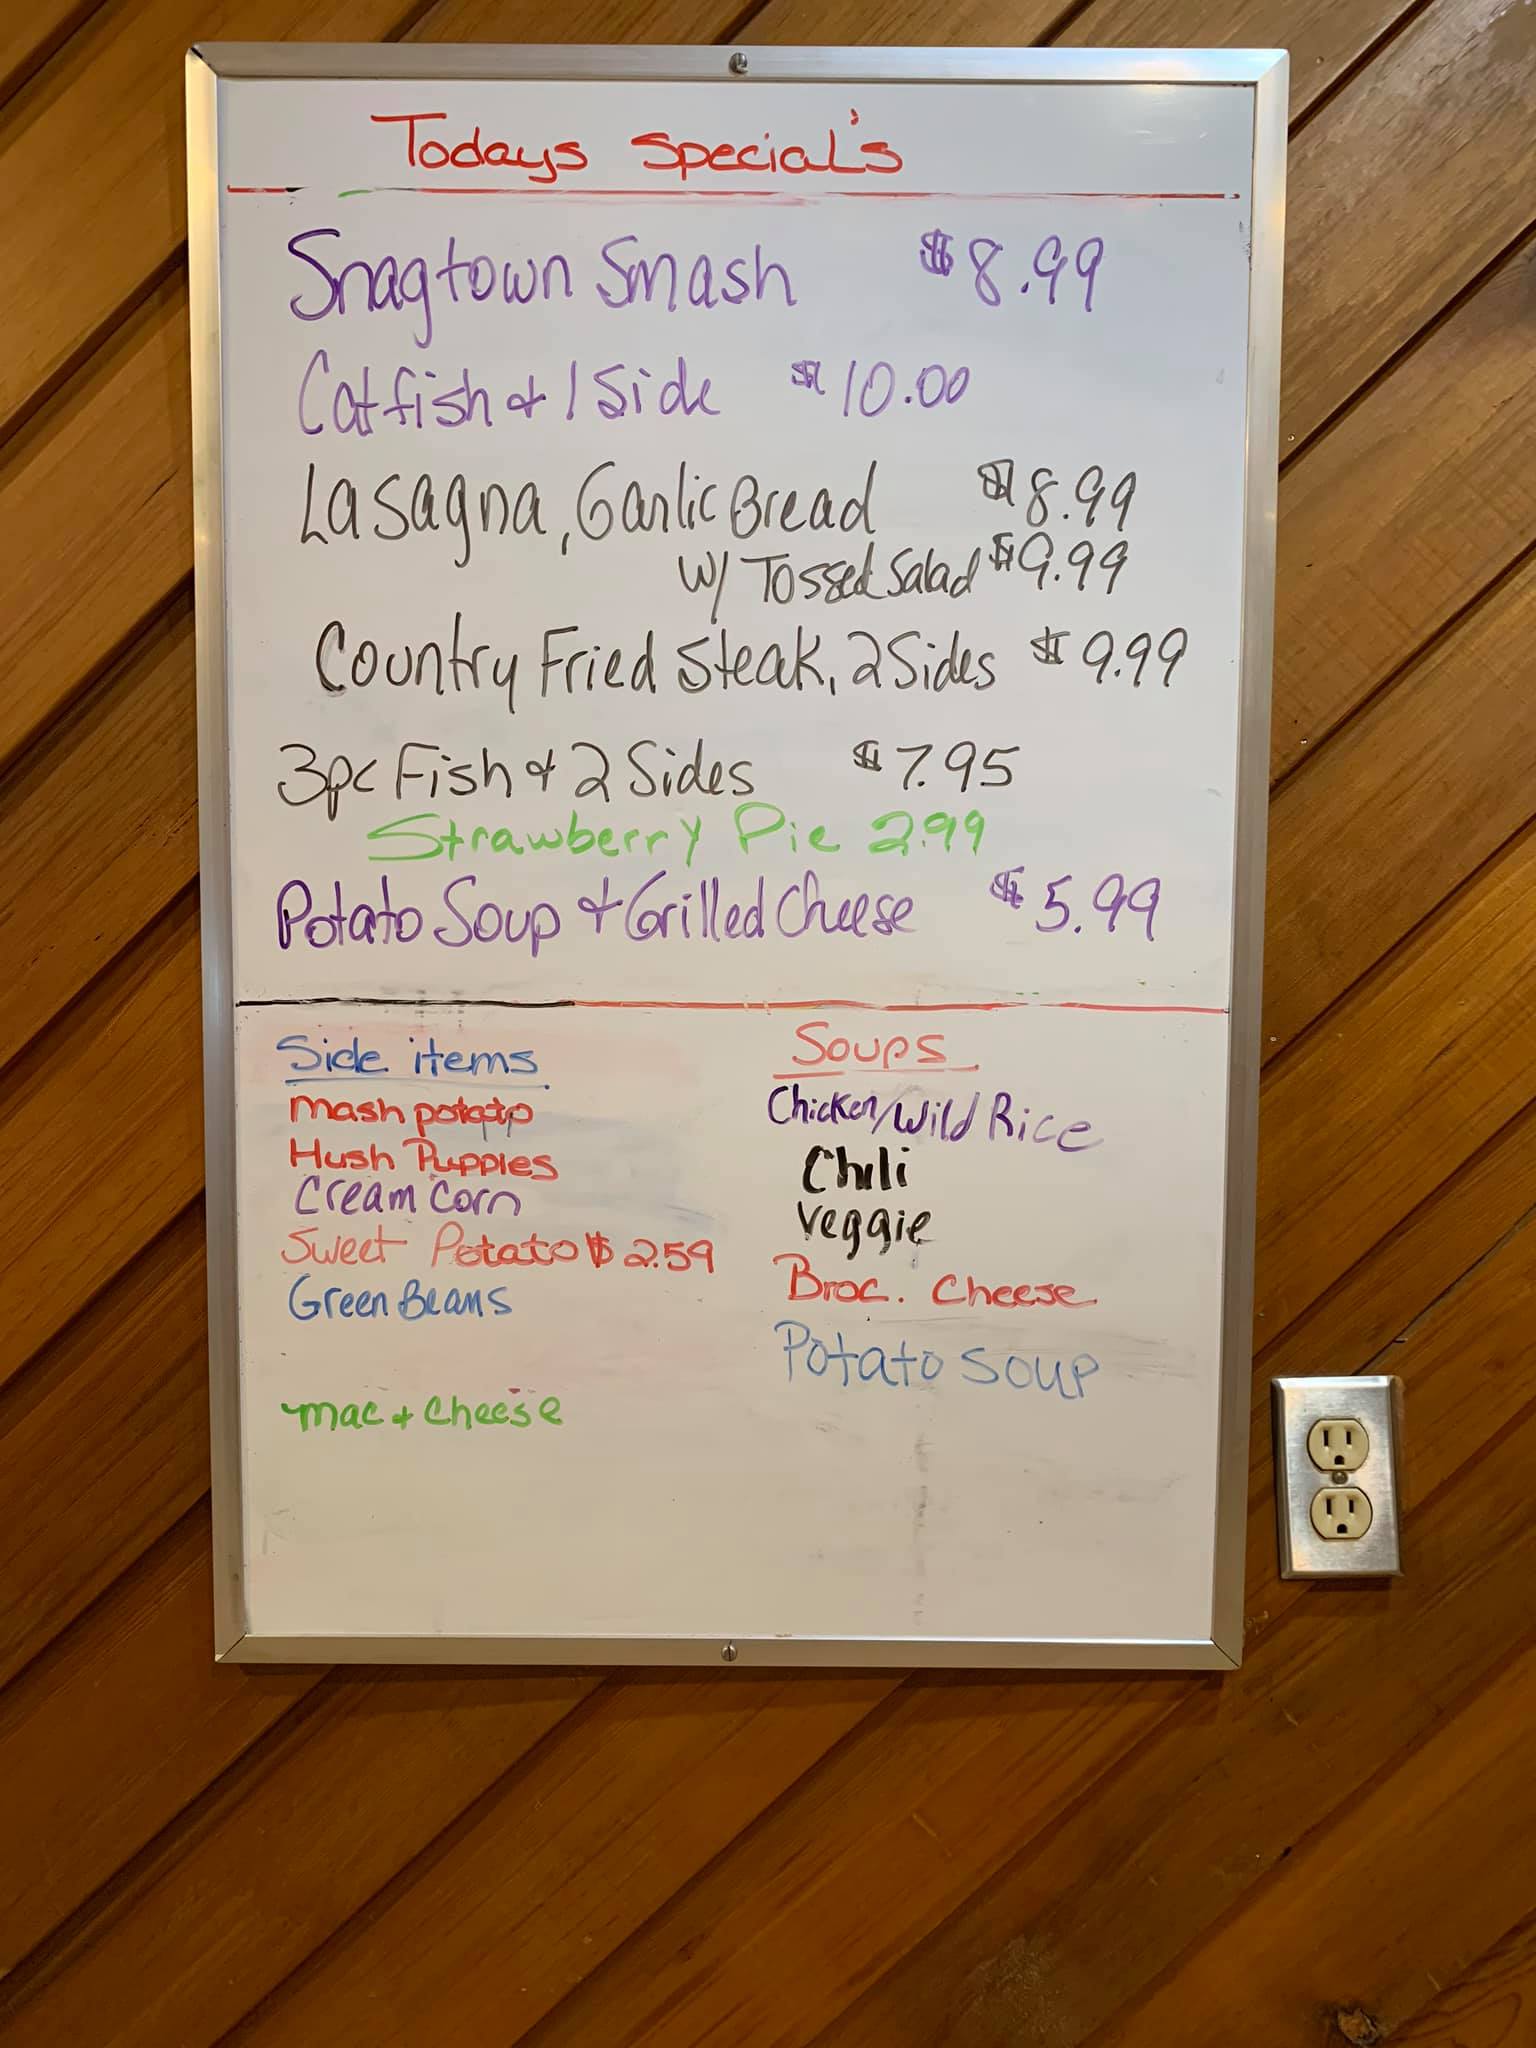 Todays Special's
Snagtown Smash $8.99
Catfish & 1 Side $10.00
Lasagna, Garlic Bread $8.99
w/ Tossed Salad $9.99
Country Fried Steak, 2 Sides $9.99
3pc Fish & 2 Sides $7.95
Strawberry Pie 2.99
Potato Soup & Grilled Cheese $5.99
Side items
mash potato
Hush Puppies
Cream Corn
Sweet Potato $2.59
Green Beans
mac & cheese
Soups
Chicken/Wild Rice
Chili
Veggie
Broc. Cheese
Potato Soup